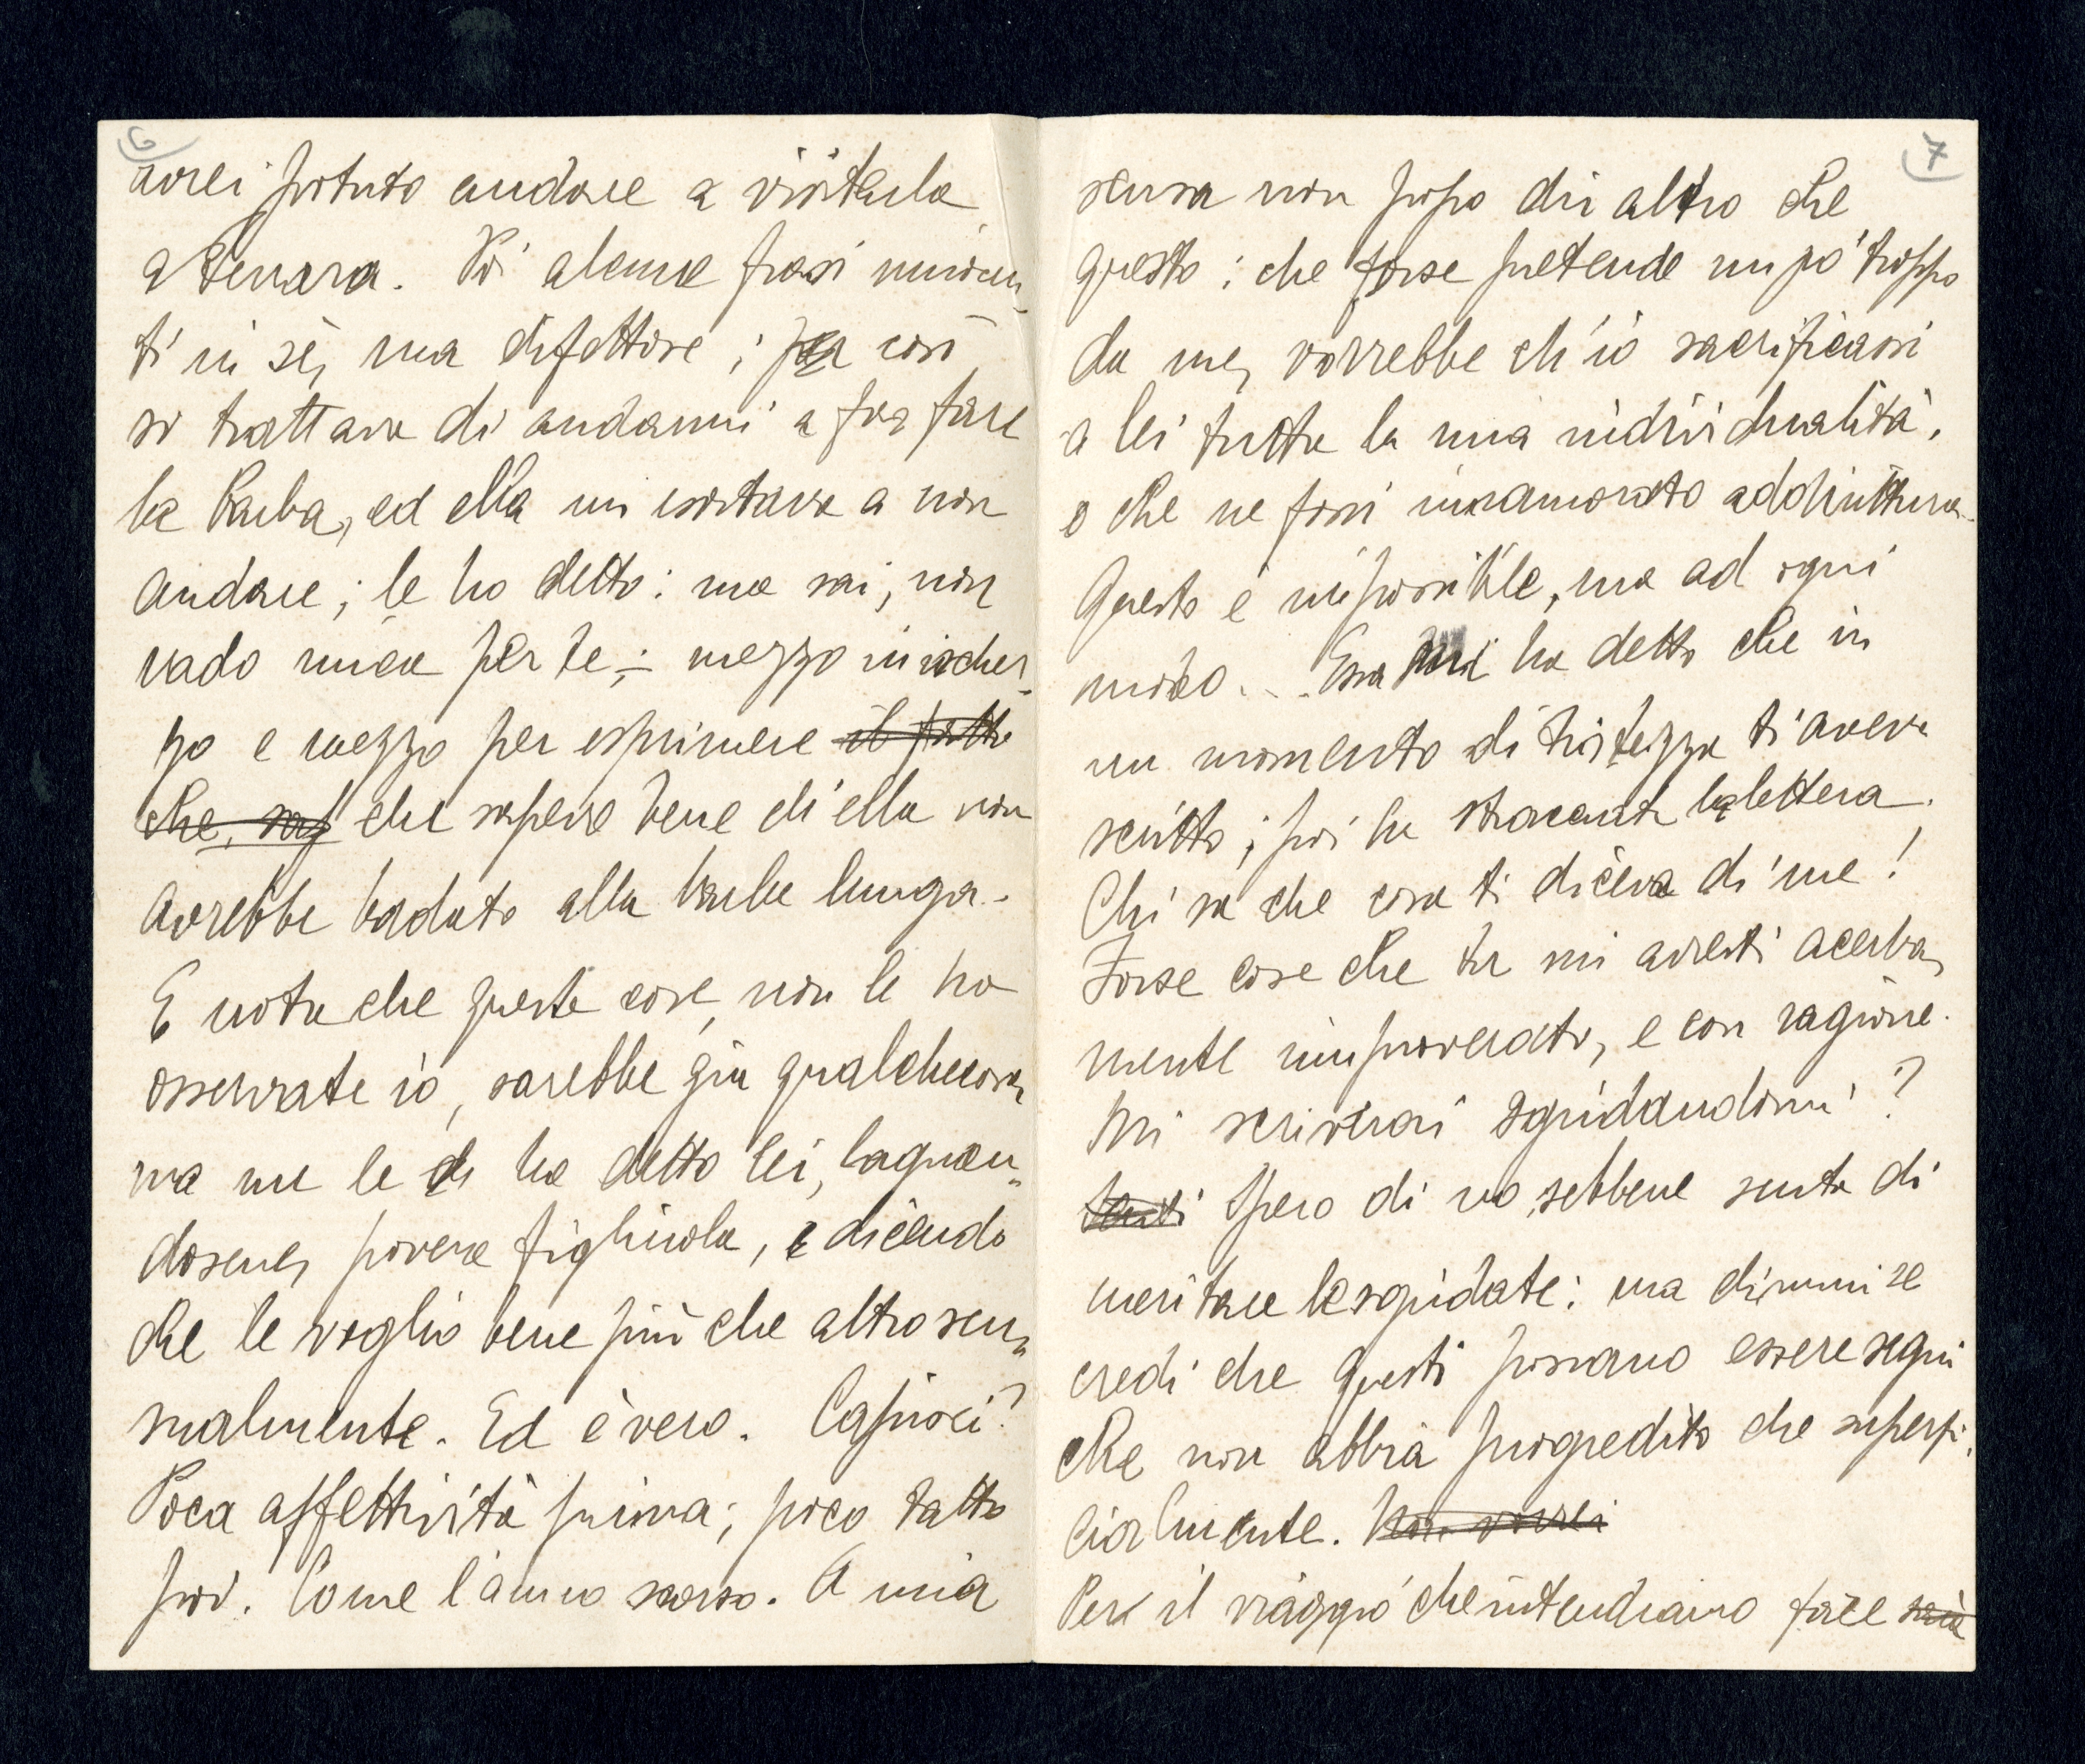 6
avrei potuto andare a visitarla
a Ferrara. Poi alcune frasi
ti in sè, ma difettose; così
si trattava di andarmi a far fare
la barba, ed ella mi esortava a non
andare; le ho detto: ma sai, non
vado mica per te; – mezzo in ischer-
zo e mezzo per esprimere il fatto
che, sap che sapevo bene ch'ella non
avrebbe badato alla barba lunga.
E nota che queste cose, non le ho
osservate io, sarebbe già qualchecosa,
ma me le ha detto lei, lagnan-
dosene, povera figliuola, e dicendo
che le voglio bene più che altro sen-
sualmente. Ed è vero. Capisci?
Poca affettività prima; poco tatto
poi. Come l'anno scorso. A mia
7
scusa non posso dir altro che
questo: che forse pretende un pò troppo
da me, vorrebbe ch'io sacrificassi
a lei tutta la mia individualità,
o che ne fossi innamorato addirittura.
Questo è impossibile, ma ad ogni
modo... Essa mi ha detto che in
un momento di tristezza ti aveva
scritto; poi ha stracciata la lettera.
Chi sa che cosa ti diceva di me!
Forse cose che tu mi avresti acerba-
mente rimproverato, e con ragione.
Mi scriverai sgridandomi?
Senti Spero di no, sebbene senta di
meritare le sgridate: ma dimmi se
credi che questi possano essere segni
che non abbia progredito che superfi-
cialmente. Non vorrei
Per il viaggio che intendiamo fare sarà